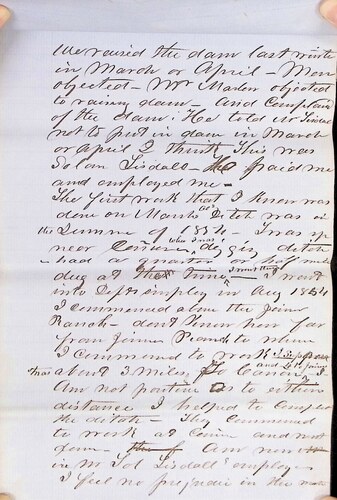 We raised the dam last winte
in March or April – Mon
objected – Mr Marlow objected
to raising dam – and Complain
of the dam: He told Mr Tisdal
not to put in dam in March
or April I think This was
Solan Tisdall – He paid me
and employed me –
The first work that I know was
done on Marks Ditch was in
the Summer of 1854 – I was up
near when I was digging ditch
– had a quarter or half mile
dug at the time – I went
into Defts employ in Aug 1854
I commenced above the Joiner
Ranch – dont know how far
from Joiner Ranch to where
I commenced to work
than about 3 miles to Canon, I
Am not positive as to either
distance I helped to complete
the ditch – They commenced
to work at Canon and went
down – Am now
in Mr Sol Tisdall employ
I feel no prejudice in the